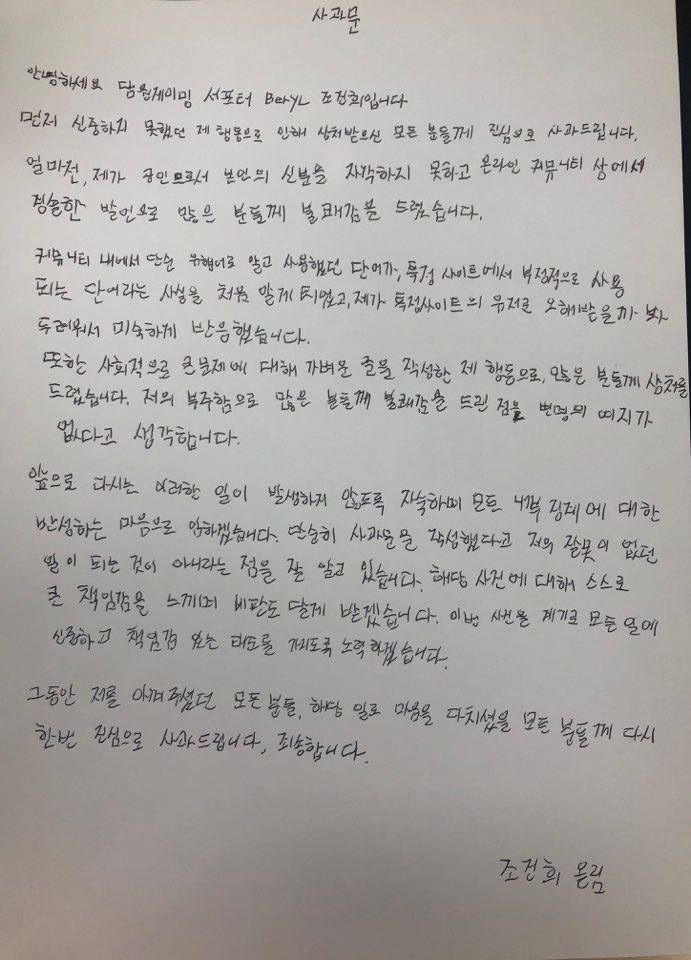 사과문
안녕하세요 담원게이밍 서포터 BeryL 조건희입니다
먼저 신중하지 못했던 제 행동으로 인해 상처받으신 모든 분들께 진심으로 사과드립니다.
얼마전, 제가 공인으로서 본인의 신분을 자각하지 못하고 온라인 커뮤니티 상에서
경솔한 발언으로 많은 분들께 불쾌감을 드렸습니다.
커뮤니티 내에서 단순 유행어로 알고 사용했던 단어가, 특정 사이트에서 부정적으로 사용
되는 단어라는 사실을 처음 알게 되었고, 제가 특정사이트의 유저로 오해받을까 봐
두려워서 미숙하게 반응했습니다.
또한 사회적으로 큰문제에 대해 가벼운 글을 작성한 제 행동으로, 많은 분들께 상처를
드렸습니다. 저의 부주함으로 많은 분들께 불쾌감을 드린 점을 변명의 여지가
없다고 생각합니다.
앞으로 다시는 이러한 일이 발생하지 않도록 자숙하며 모든 내부 징계에 대한
반성하는 마음으로 임하겠습니다. 단순히 사과문을 작성했다고 저의 잘못이 없던
일이 되는 것이 아니라는 점을 잘 알고 있습니다. 해당 사건에 대해 스스로
큰 책임감을 느끼며 비판도 달게 받겠습니다. 이번 사건을 계기로 모든 일에
신중하고 책임감 있는 태도를 가지도록 노력하겠습니다.
그동안 저를 아껴주셨던 모든 분들, 해당 일로 마음을 다치셨을 모든 분들께 다시
한번 진심으로 사과드립니다, 죄송합니다.
조건희 올림